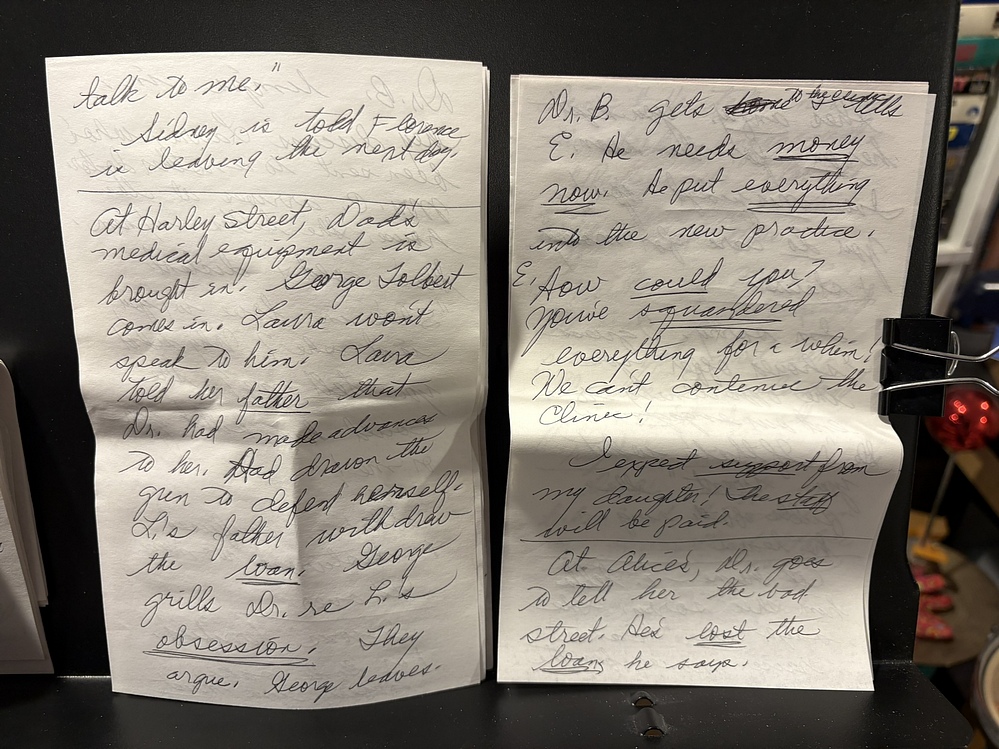 talk to me."
Sidney is told Florence
is leaving the next day.
At Harley Street, Dad's
medical equipment is
brought in. George Tolbert
comes in. Laura won't
speak to him. Laura
told her father that
Dr. had made advances
to her. Had drawn the
gun to defend herself.
L.'s father withdraw
the loan. George
grills Dr. re L.'s
obsession. They
argue. George leaves.
Dr. B. gets to the tells
E. He needs money
now. He put everything
into the new practice.
E. How could you?
You've squandered
everything for a whim!
We can't continue the
Clinic!
I expect support from
my daughter! The staff
will be paid.
At Alice's, Dr. goes
to tell her the bad
street. He's lost the
loan, he says.